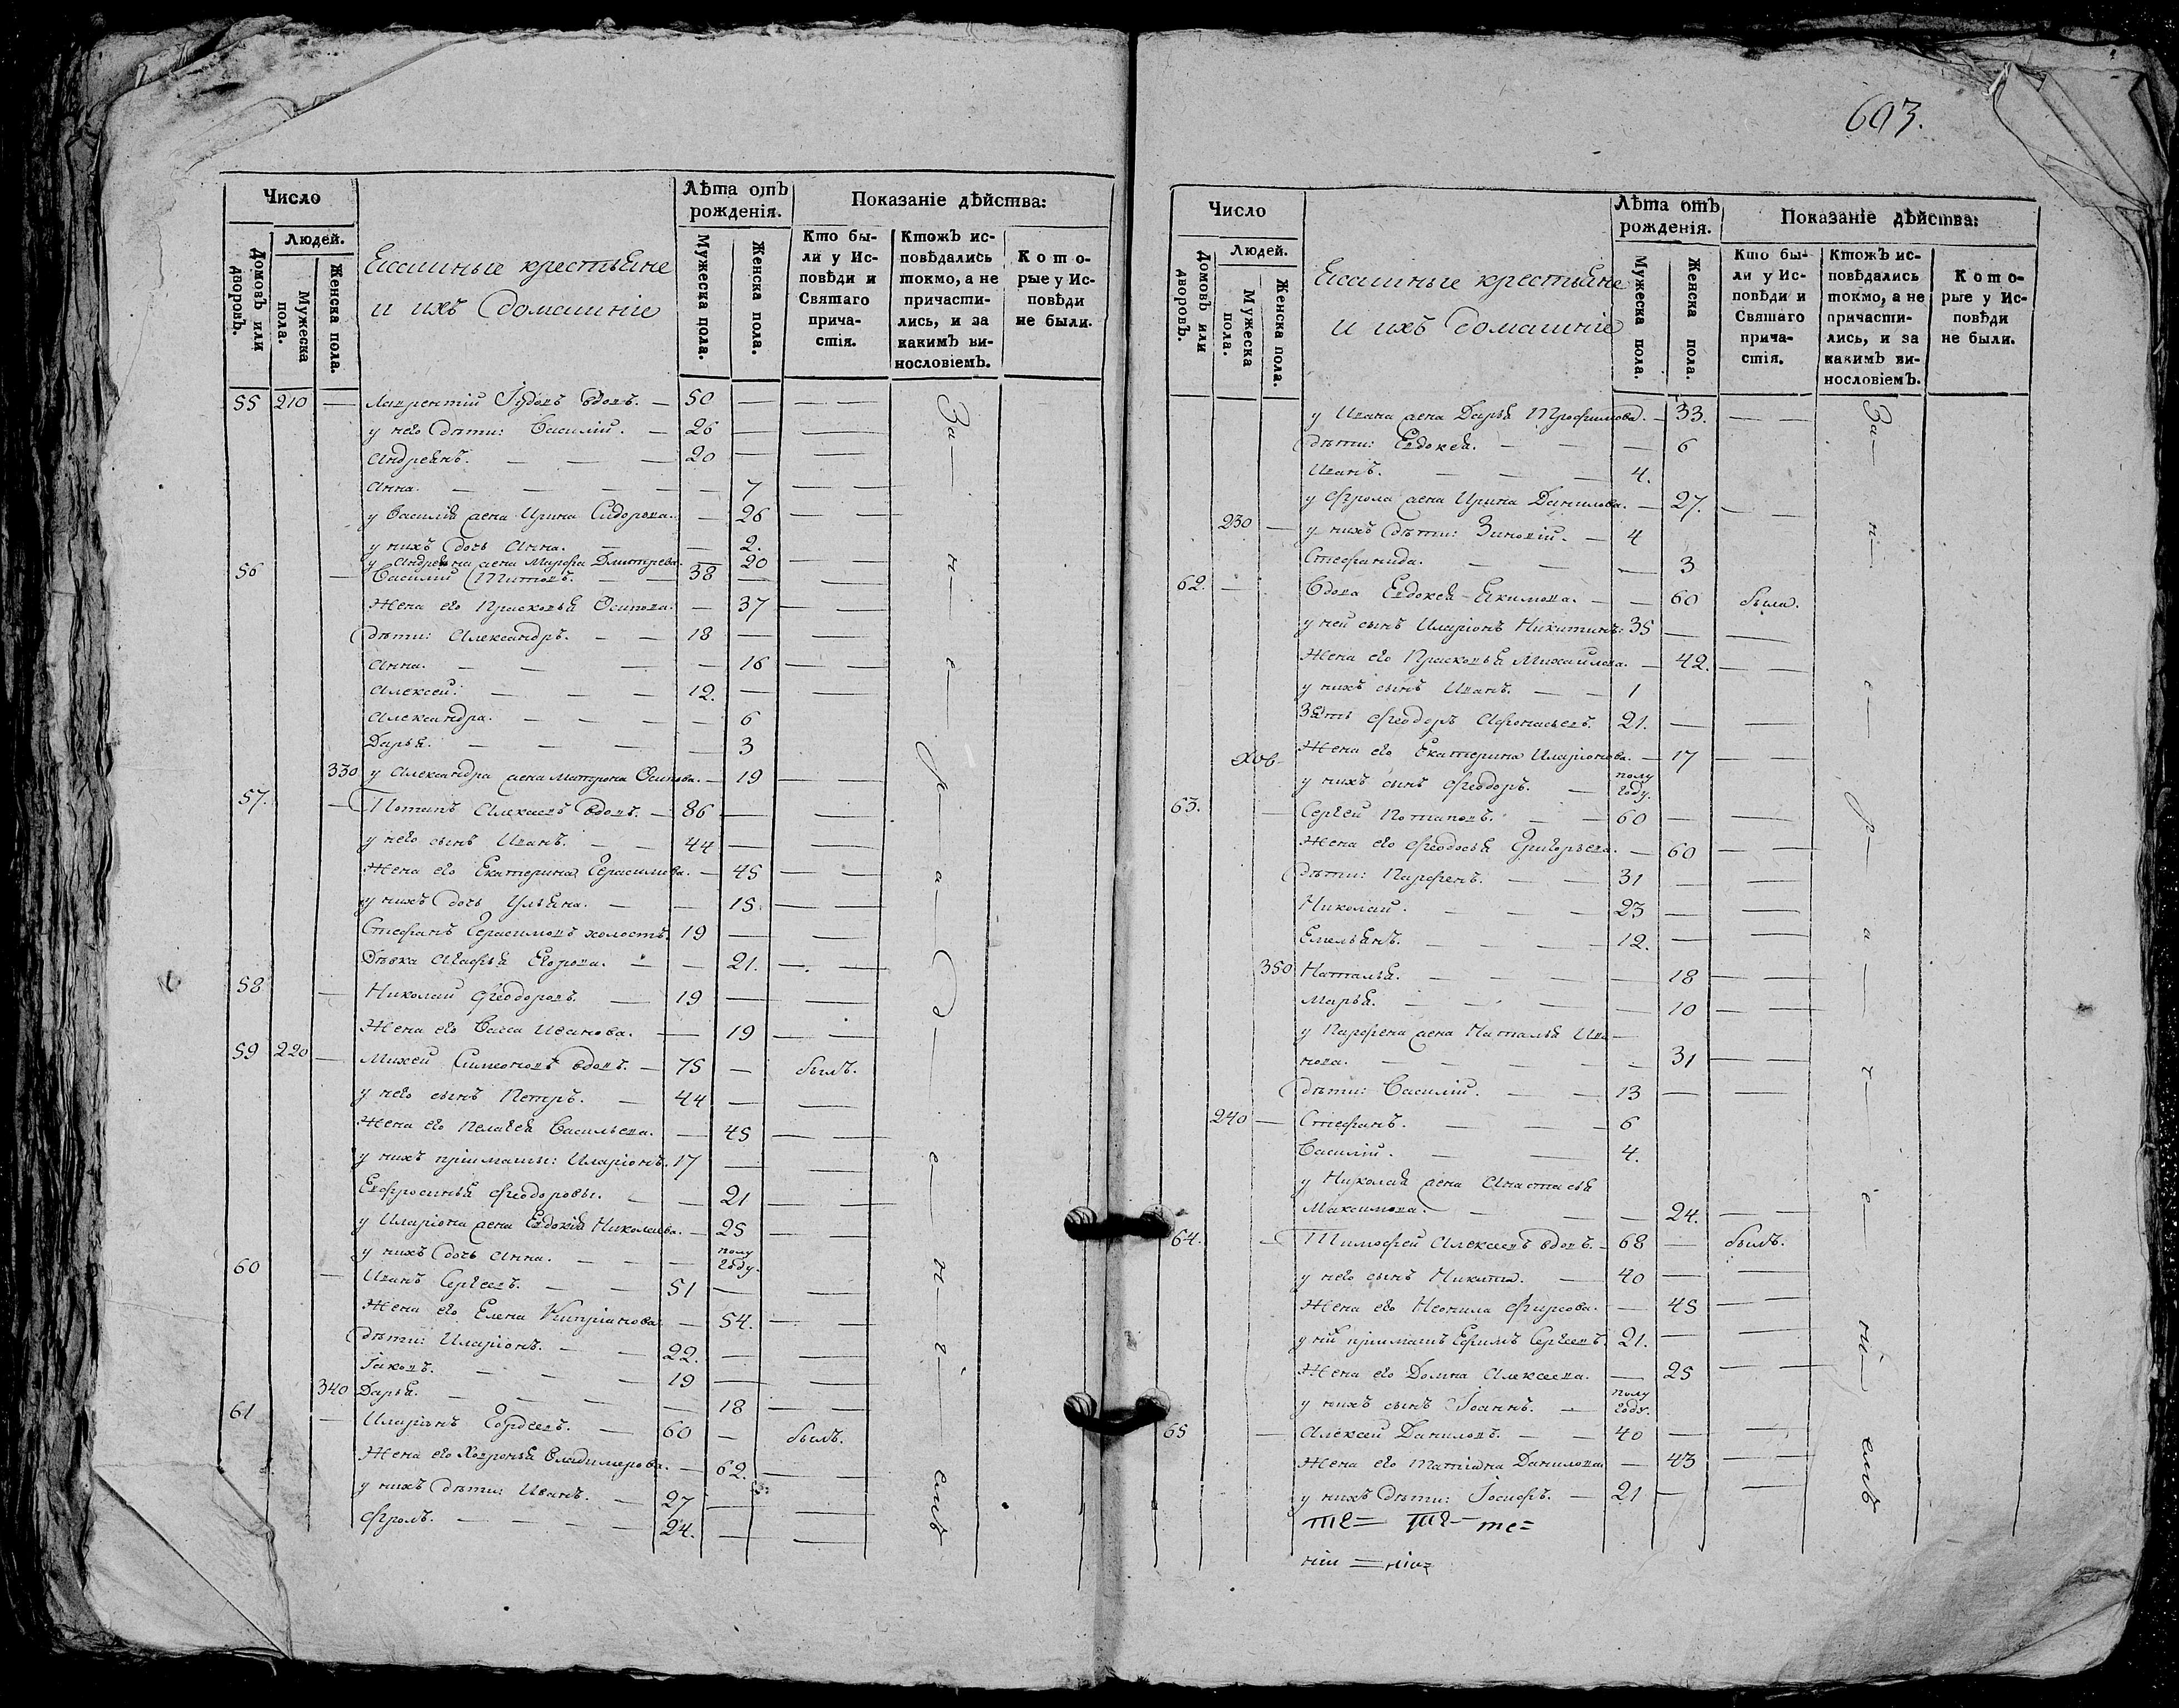 Число
Людей.
Домовъ или дворовъ.
Мужеска пола.
Женска пола.
крестьяне
и ихъ домашніе
Лѣта отъ рожденія.
Мужеска пола.
Женска пола.
Показаніе дѣйства:
Кто были у Исповѣди и Святаго причастія.
Ктожъ исповѣдались токмо, а не причастились, и за какимъ винословіемъ.
Которые у Исповѣди не были.
55 210 — Лаврентій Іудовъ вдовъ. — 50 — —
у него дѣти: Василій. — 26 — —
Андреянъ. — — — 20 — —
Анна. — — — — 7 — —
у Василія жена Ирина Сидорова. — 26 — —
у нихъ дочь Анна. — — 2.
у Андреяна жена Марфа Дмитрева. — 20 —
56 — Василій Титовъ. — — 38 — —
Жена его Прасковья Осипова. — 37 — —
дѣти: Александръ. — — 18 — —
Анна. — — — — 16 — —
Алексей. — — — 12. — —
Александра. — — — — 6 — —
Дарья. — — — — 3 — —
330 у Александра жена Матрона Осипова. — 19 — —
57. — Потапъ Алексеевъ вдовъ. — 86 — —
у него сынъ Иванъ. — — 44 — —
Жена его Екатерина Герасимова. — 45 — —
у нихъ дочь Ульяна. — — 15. — —
Стефанъ Герасимовъ холостъ. 19 — —
Дѣвка Агафья Егорова. — — 21. — —
58 — Николай Феодоровъ. — 19 — —
Жена его Васса Иванова. — 19 — —
59 220 — Михей Симеоновъ вдовъ. — 75 — былъ.
у него сынъ Петръ. — 44 — —
Жена его Пелагея Васильева. — 45 — —
у нихъ пріимаши: Иларіонъ. 17 — —
Евфросинья Феодоровы. — — 21 — —
у Иларіона жена Евдокія Николаева. — 25 — —
у нихъ дочь Анна. — — — полу году.
60 — Иванъ Сергеевъ. — — 51 — —
Жена его Елена Кипріанова. — 54. — —
дѣти: Иларіонъ. — — 22. — —
Іаковъ. — — — 19 — —
340 Дарья. — — — — 18 — —
61 — Иларіонъ Гордеевъ. — 60 — былъ.
Жена его Хавронья Владимерова. — 62. — —
у нихъ дѣти: Иванъ. — 27 — —
Фролъ. — — — — 24. — —
За — не — ніемъ
603.
Число
Людей.
Домовъ или дворовъ.
Мужеска пола.
Женска пола.
крестьяне
и ихъ домашніе
Лѣта отъ рожденія.
Мужеска пола.
Женска пола.
Показаніе дѣйства:
Кто были у Исповѣди и Святаго причастія.
Ктожъ исповѣдались токмо, а не причастились, и за какимъ винословіемъ.
Которые у Исповѣди не были.
у Ивана жена Дарья Трофимова. — 33. — —
дѣти: Евдокея. — — 6
Иванъ. — — — 4.
у Фрола жена Ирина Данилова. — 27. — —
230 — у нихъ дѣти: Зиновій. — 4
Стефанида. — — — 3
62. — Вдова Евдокея Екимова. — — 60 была.
у ней сынъ Иларіонъ Никитинъ. 35 — —
Жена его Прасковья Михайлова. — 42. — —
у нихъ сынъ Иванъ. — — 1
Зять Феодоръ Афонасьевъ. 21. — —
Жена его Екатерина Иларіонова. — 17 — —
у нихъ сынъ Феодоръ. — полу году.
63. — Сергей Потаповъ. — — 60 — —
Жена его Феодосья Григорьева. — 60 — —
дѣти: Парфенъ. — — 31 — —
Николай. — — — 23 — —
Емельянъ. — — — 12. — —
350 Наталья. — — — — 18 — —
Марья. — — — — 10 — —
у Парфена жена Наталья Ива-
нова. — — — — 31 — —
дѣти: Василій. — — 13 — —
240 — Стефанъ. — — — 6
Василій. — — 4.
у Николая жена Анастасья
Максимова. — — — 24. — —
64. — Тимофей Алексеевъ вдовъ. — 68 — былъ.
у него сынъ Никита. — 40 — —
Жена его Неонила Фирсова. — 45 — —
у ней пріимашъ Ефимъ Сергеевъ. 21. — —
Жена его Домна Алексеева. — 25 — —
у нихъ сынъ Іоаннъ. — полу году.
65 — Алексей Даниловъ. — — 40 — —
Жена его Татіана Данилова — 43 — —
у нихъ дѣти: Іосифъ. — 21 — —
За — не — ніемъ